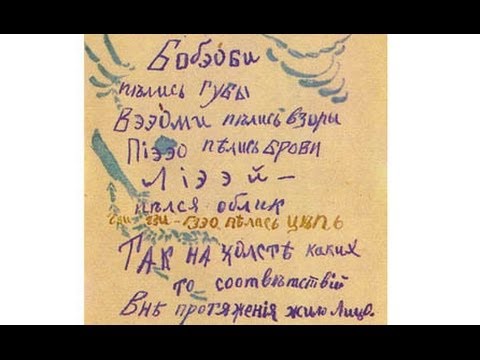 Бобэоби
пѣлись губы
Вээоми пѣлись взоры
Піээо пѣлись брови
Ліэээй —
пѣлся облик
Гзи-гзи-гзэо пѣлась цѣпь
Так на холстѣ каких
то соотвѣтствій
Внѣ протяженія жило Лицо.